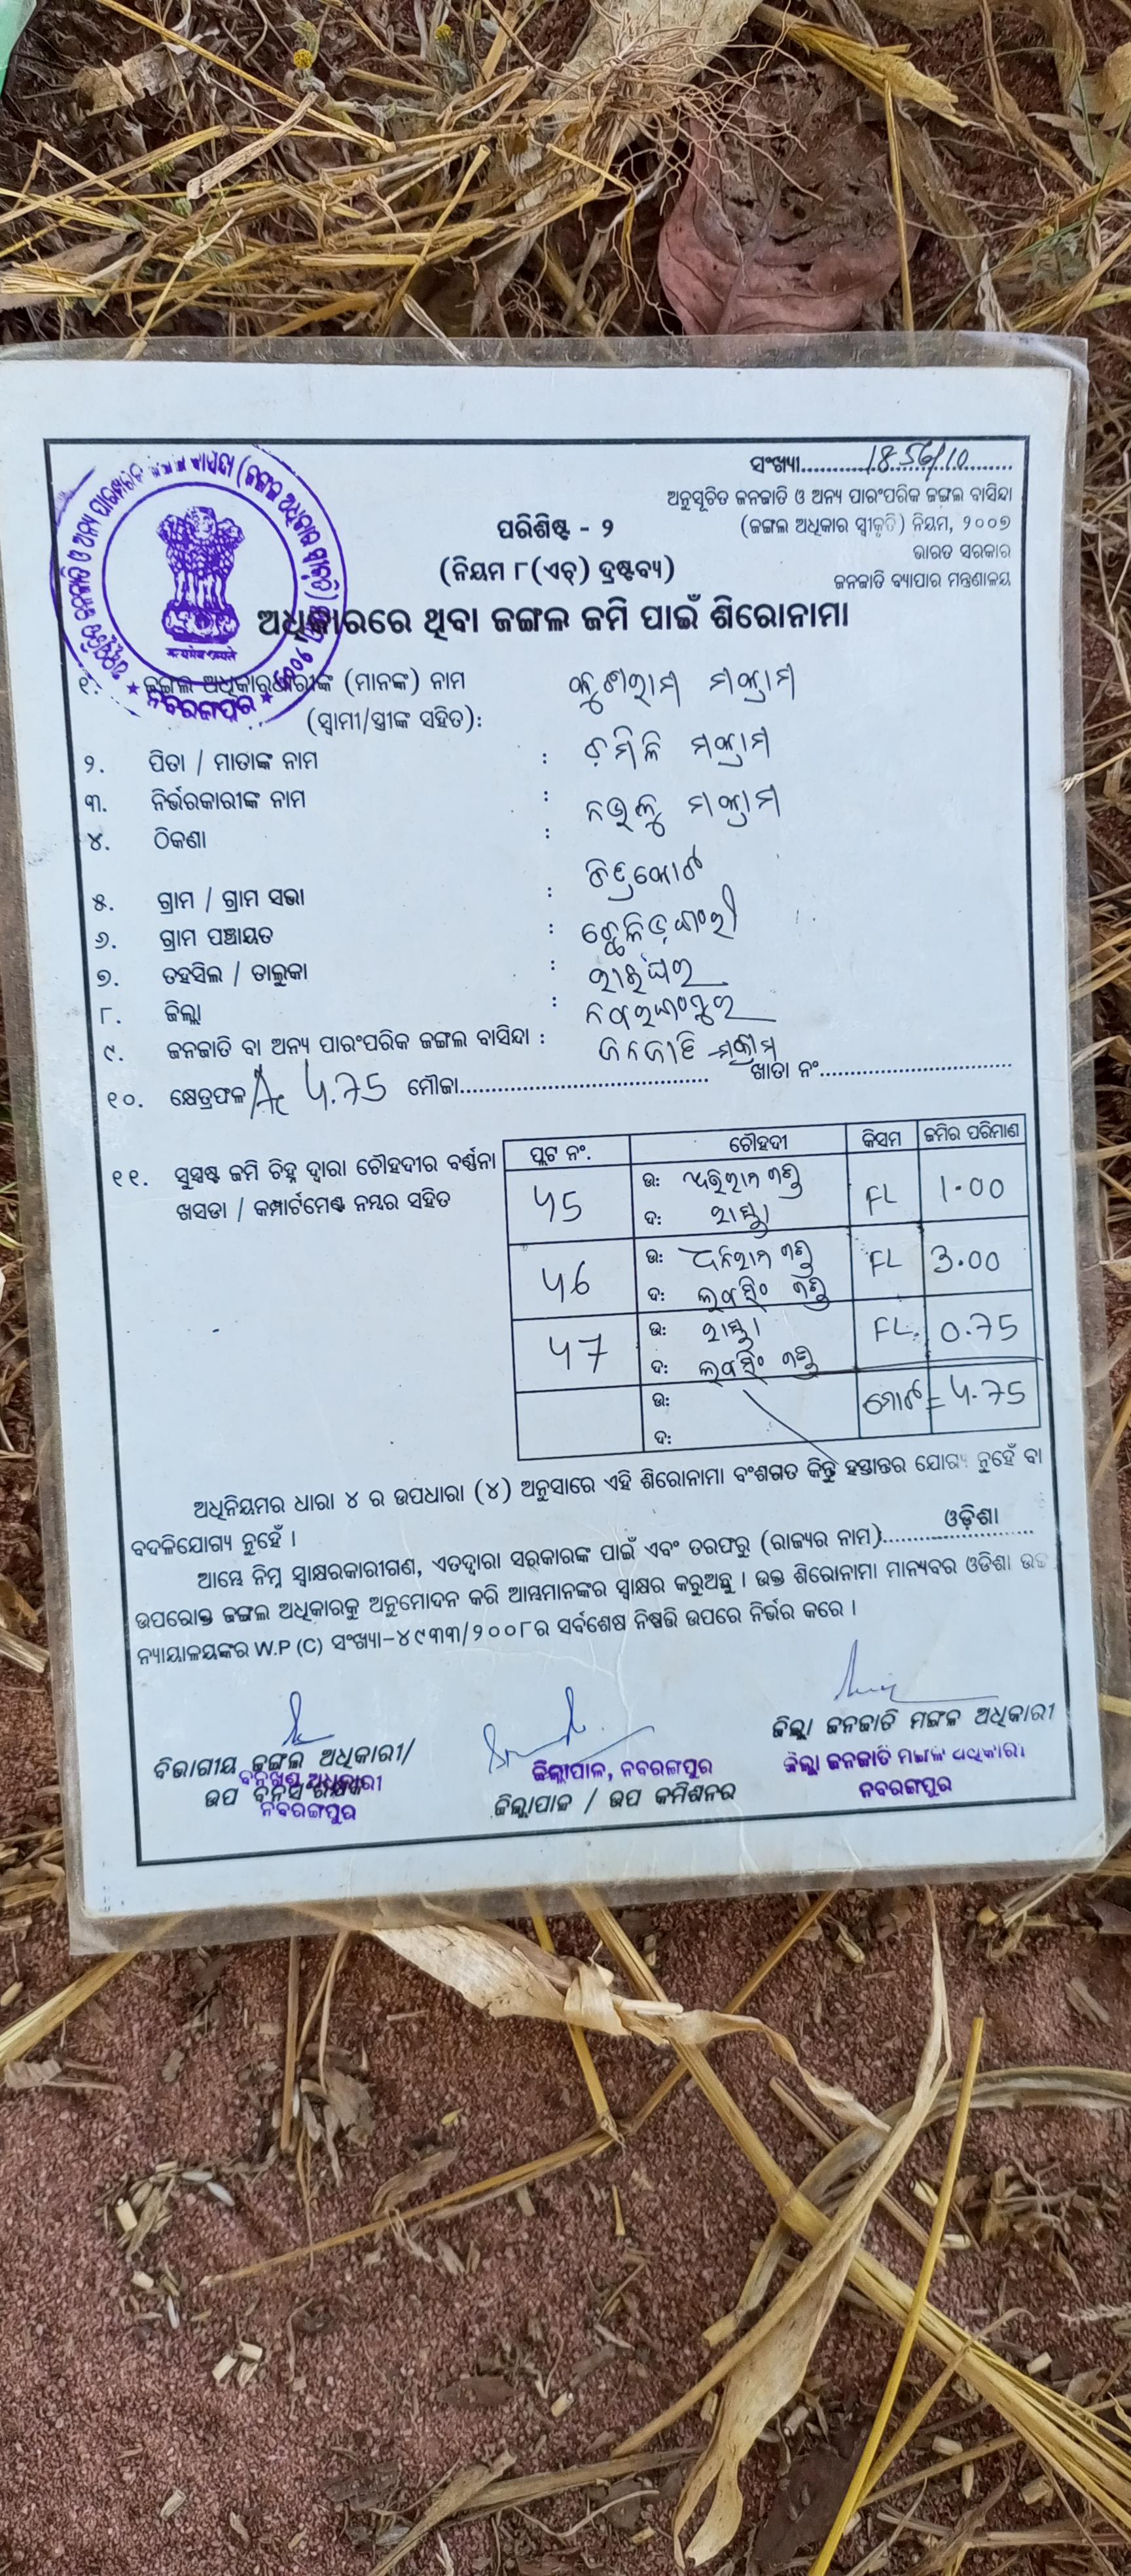 ସଂଖ୍ୟା.............1856/10
ଅନୁସୂଚିତ ଜନଜାତି ଓ ଅନ୍ୟ ପାରଂପରିକ ଜଙ୍ଗଲ ବାସିନ୍ଦା
(ଜଙ୍ଗଲ ଅଧିକାର ସ୍ୱୀକୃତି) ନିୟମ, ୨୦୦୭
ଭାରତ ସରକାର
ଜନଜାତି ବ୍ୟାପାର ମନ୍ତ୍ରଣାଳୟ
ପରିଶିଷ୍ଟ - ୨
(ନିୟମ ୮(ଏଚ୍) ଦ୍ରଷ୍ଟବ୍ୟ)
ଅଧିକାରରେ ଥିବା ଜଙ୍ଗଲ ଜମି ପାଇଁ ଶିରୋନାମା
ନବରଙ୍ଗପୁର
୧. ଜଙ୍ଗଲ ଅଧିକାରଧାରୀଙ୍କ (ମାନଙ୍କ) ନାମ ମରକାମ
(ସ୍ୱାମୀ/ସ୍ତ୍ରୀଙ୍କ ସହିତ):
୨. ପିତା / ମାତାଙ୍କ ନାମ : ମରକାମ
୩. ନିର୍ଭରକାରୀଙ୍କ ନାମ : ମରକାମ
୪. ଠିକଣା :
୫. ଗ୍ରାମ / ଗ୍ରାମ ସଭା : ଚିତ୍ରକୋଟ
୬. ଗ୍ରାମ ପଞ୍ଚାୟତ :
୭. ତହସିଲ / ତାଲୁକା : ରାଇଘର
୮. ଜିଲ୍ଲା : ନବରଙ୍ଗପୁର
୯. ଜନଜାତି ବା ଅନ୍ୟ ପାରଂପରିକ ଜଙ୍ଗଲ ବାସିନ୍ଦା : ଜନଜାତି
୧୦. କ୍ଷେତ୍ରଫଳ Ac 4.75 ମୌଜା.................... ଖାତା ନଂ....................
୧୧. ସୁସ୍ପଷ୍ଟ ଜମି ଚିହ୍ନ ଦ୍ୱାରା ଚୌହଦୀର ବର୍ଣ୍ଣନା
ଖସଡା / କମ୍ପାର୍ଟମେଣ୍ଟ ନମ୍ବର ସହିତ
ପ୍ଲଟ ନଂ. ଚୌହଦୀ କିସମ ଜମିର ପରିମାଣ
45 ଉ: FL 1.00
ଦ: ରାସ୍ତା
46 ଉ: ଧନିରାମ FL 3.00
ଦ:
47 ଉ: ରାସ୍ତା FL. 0.75
ଦ:
ଉ: ମୋଟ = 4.75
ଦ:
ଅଧିନିୟମର ଧାରା ୪ ର ଉପଧାରା (୪) ଅନୁସାରେ ଏହି ଶିରୋନାମା ବଂଶଗତ କିନ୍ତୁ ହସ୍ତାନ୍ତର ଯୋଗ୍ୟ ନୁହେଁ ବା
ବଦଳିଯୋଗ୍ୟ ନୁହେଁ ।
ଆମ୍ଭେ ନିମ୍ନ ସ୍ୱାକ୍ଷରକାରୀଗଣ, ଏତଦ୍ୱାରା ସରକାରଙ୍କ ପାଇଁ ଏବଂ ତରଫରୁ (ରାଜ୍ୟର ନାମ)..........ଓଡ଼ିଶା..........
ଉପରୋକ୍ତ ଜଙ୍ଗଲ ଅଧିକାରକୁ ଅନୁମୋଦନ କରି ଆମ୍ଭମାନଙ୍କର ସ୍ୱାକ୍ଷର କରୁଅଛୁ । ଉକ୍ତ ଶିରୋନାମା ମାନ୍ୟବର ଓଡିଶା ଉଚ୍ଚ
ନ୍ୟାୟାଳୟଙ୍କର W.P (C) ସଂଖ୍ୟା-୪୯୩୩/୨୦୦୮ର ସର୍ବଶେଷ ନିଷ୍ପତ୍ତି ଉପରେ ନିର୍ଭର କରେ ।
ବିଭାଗୀୟ ଜଙ୍ଗଲ ଅଧିକାରୀ/
ଉପ ବନସଂରକ୍ଷକ
ବନଖଣ୍ଡ ଅଧିକାରୀ
ନବରଙ୍ଗପୁର
ଜିଲ୍ଲାପାଳ, ନବରଙ୍ଗପୁର
ଜିଲ୍ଲାପାଳ / ଉପ କମିଶନର
ଜିଲ୍ଲା ଜନଜାତି ମଙ୍ଗଳ ଅଧିକାରୀ
ଜିଲ୍ଲା ଜନଜାତି ମଙ୍ଗଳ ଅଧିକାରୀ
ନବରଙ୍ଗପୁର